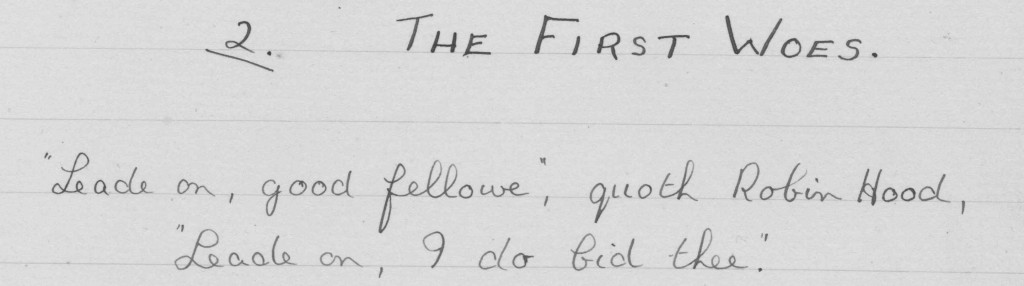 2. THE FIRST WOES.
"Leade on, good fellowe", quoth Robin Hood,
"Leade on, I do bid thee."